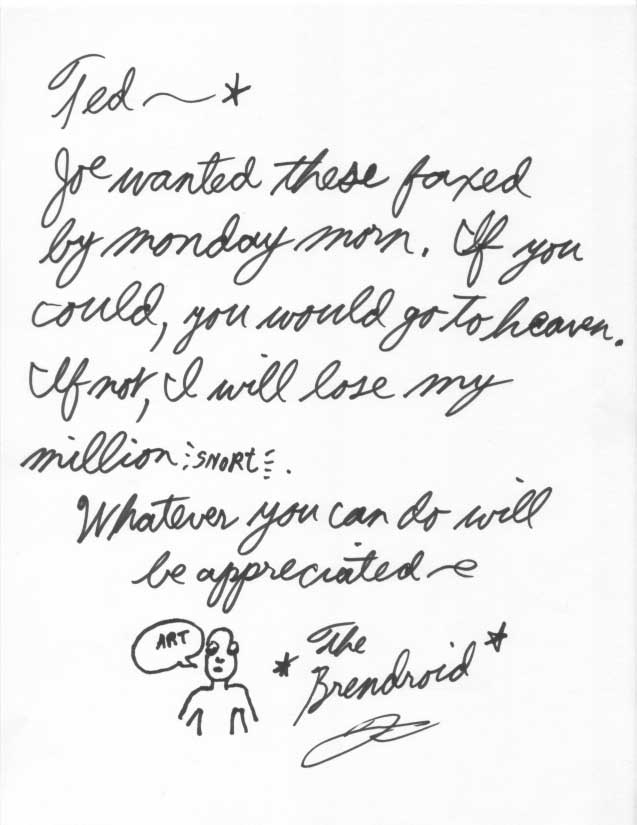 Ted ~ *
Joe wanted these faxed
by monday morn. If you
could, you would go to heaven.
If not, I will lose my
million SNORT.
Whatever you can do will
be appreciated ~
ART
* The
Brendroid *